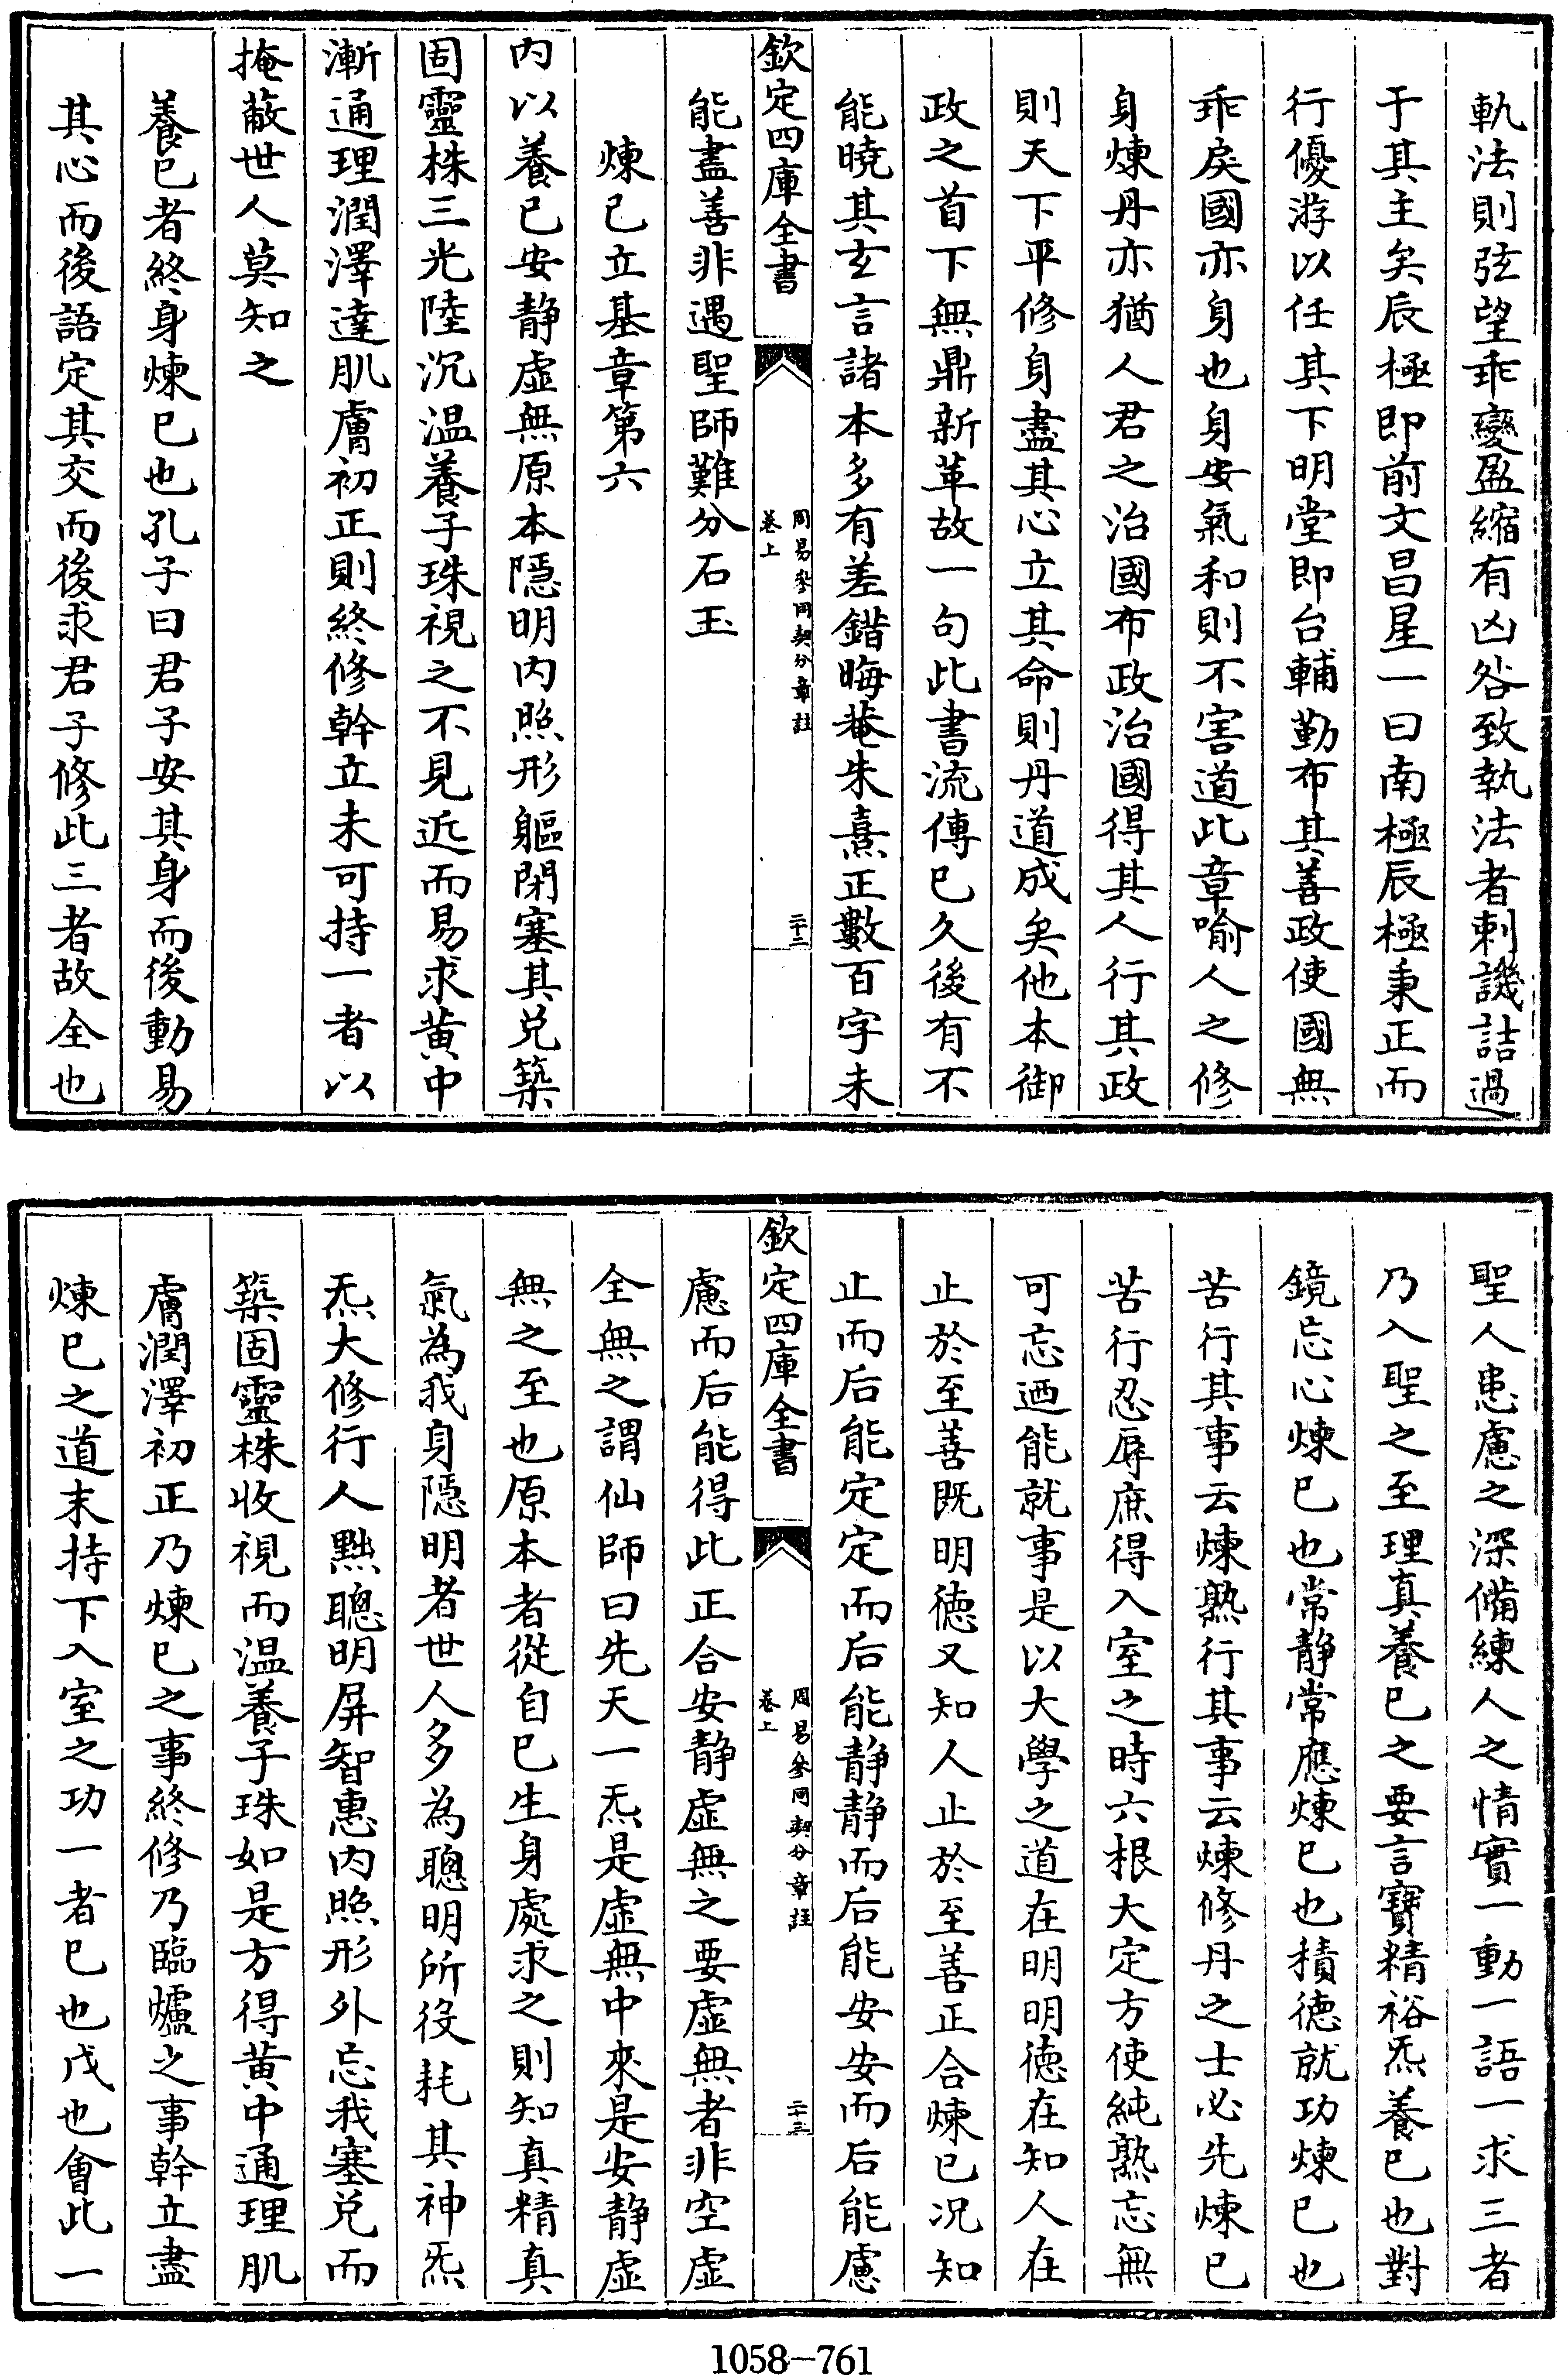 軌法則弦望乖變盈縮有凶咎致執法者刺譏詰過
于其主矣辰極即前文昌星一曰南極辰極秉正而
行優游以任其下明堂即台輔勤布其善政使國無
乖戾國亦身也身安氣和則不害道此章喻人之修
身煉丹亦猶人君之治國布政治國得其人行其政
則天下平修身盡其心立其命則丹道成矣他本御
政之首下無鼎新革故一句此書流傳已久後有不
能曉其玄言諸本多有差錯晦菴朱熹正數百字未
欽定四庫全書
周易參同契分章註
卷上
二十二
能盡善非遇聖師難分石玉
煉己立基章第六
内以養已安静虚無原本隱明内照形軀閉塞其兌築
固靈株三光陸沉温養子珠視之不見近而易求黄中
漸通理潤澤達肌膚初正則終修幹立未可持一者以
掩蔽世人莫知之
養已者終身煉已也孔子曰君子安其身而後動易
其心而後語定其交而後求君子修此三者故全也
聖人患慮之深備練人之情實一動一語一求三者
乃入聖之至理真養已之要言寶精裕炁養已也對
鏡忘心煉已也常静常應煉已也積德就功煉已也
苦行其事云煉熟行其事云煉修丹之士必先煉已
苦行忍辱庶得入室之時六根大定方使純熟忘無
可忘迺能就事是以大學之道在明明德在知人在
止於至善既明德又知人止於至善正合煉已况知
止而后能定定而后能静静而后能安安而后能慮
欽定四庫全書
周易參同契分章註
卷上
二十三
慮而后能得此正合安静虚無之要虚無者非空虚
全無之謂仙師曰先天一炁是虚無中來是安静虚
無之至也原本者從自已生身處求之則知真精真
氣為我身隱明者世人多為聰明所役耗其神炁
炁大修行人黜聰明屏智惠内照形外忘我塞兌而
築固靈株收視而温養子珠如是方得黄中通理肌
膚潤澤初正乃煉已之事終修乃臨爐之事幹立盡
煉已之道末持下入室之功一者已也戊也會此一
1058-761